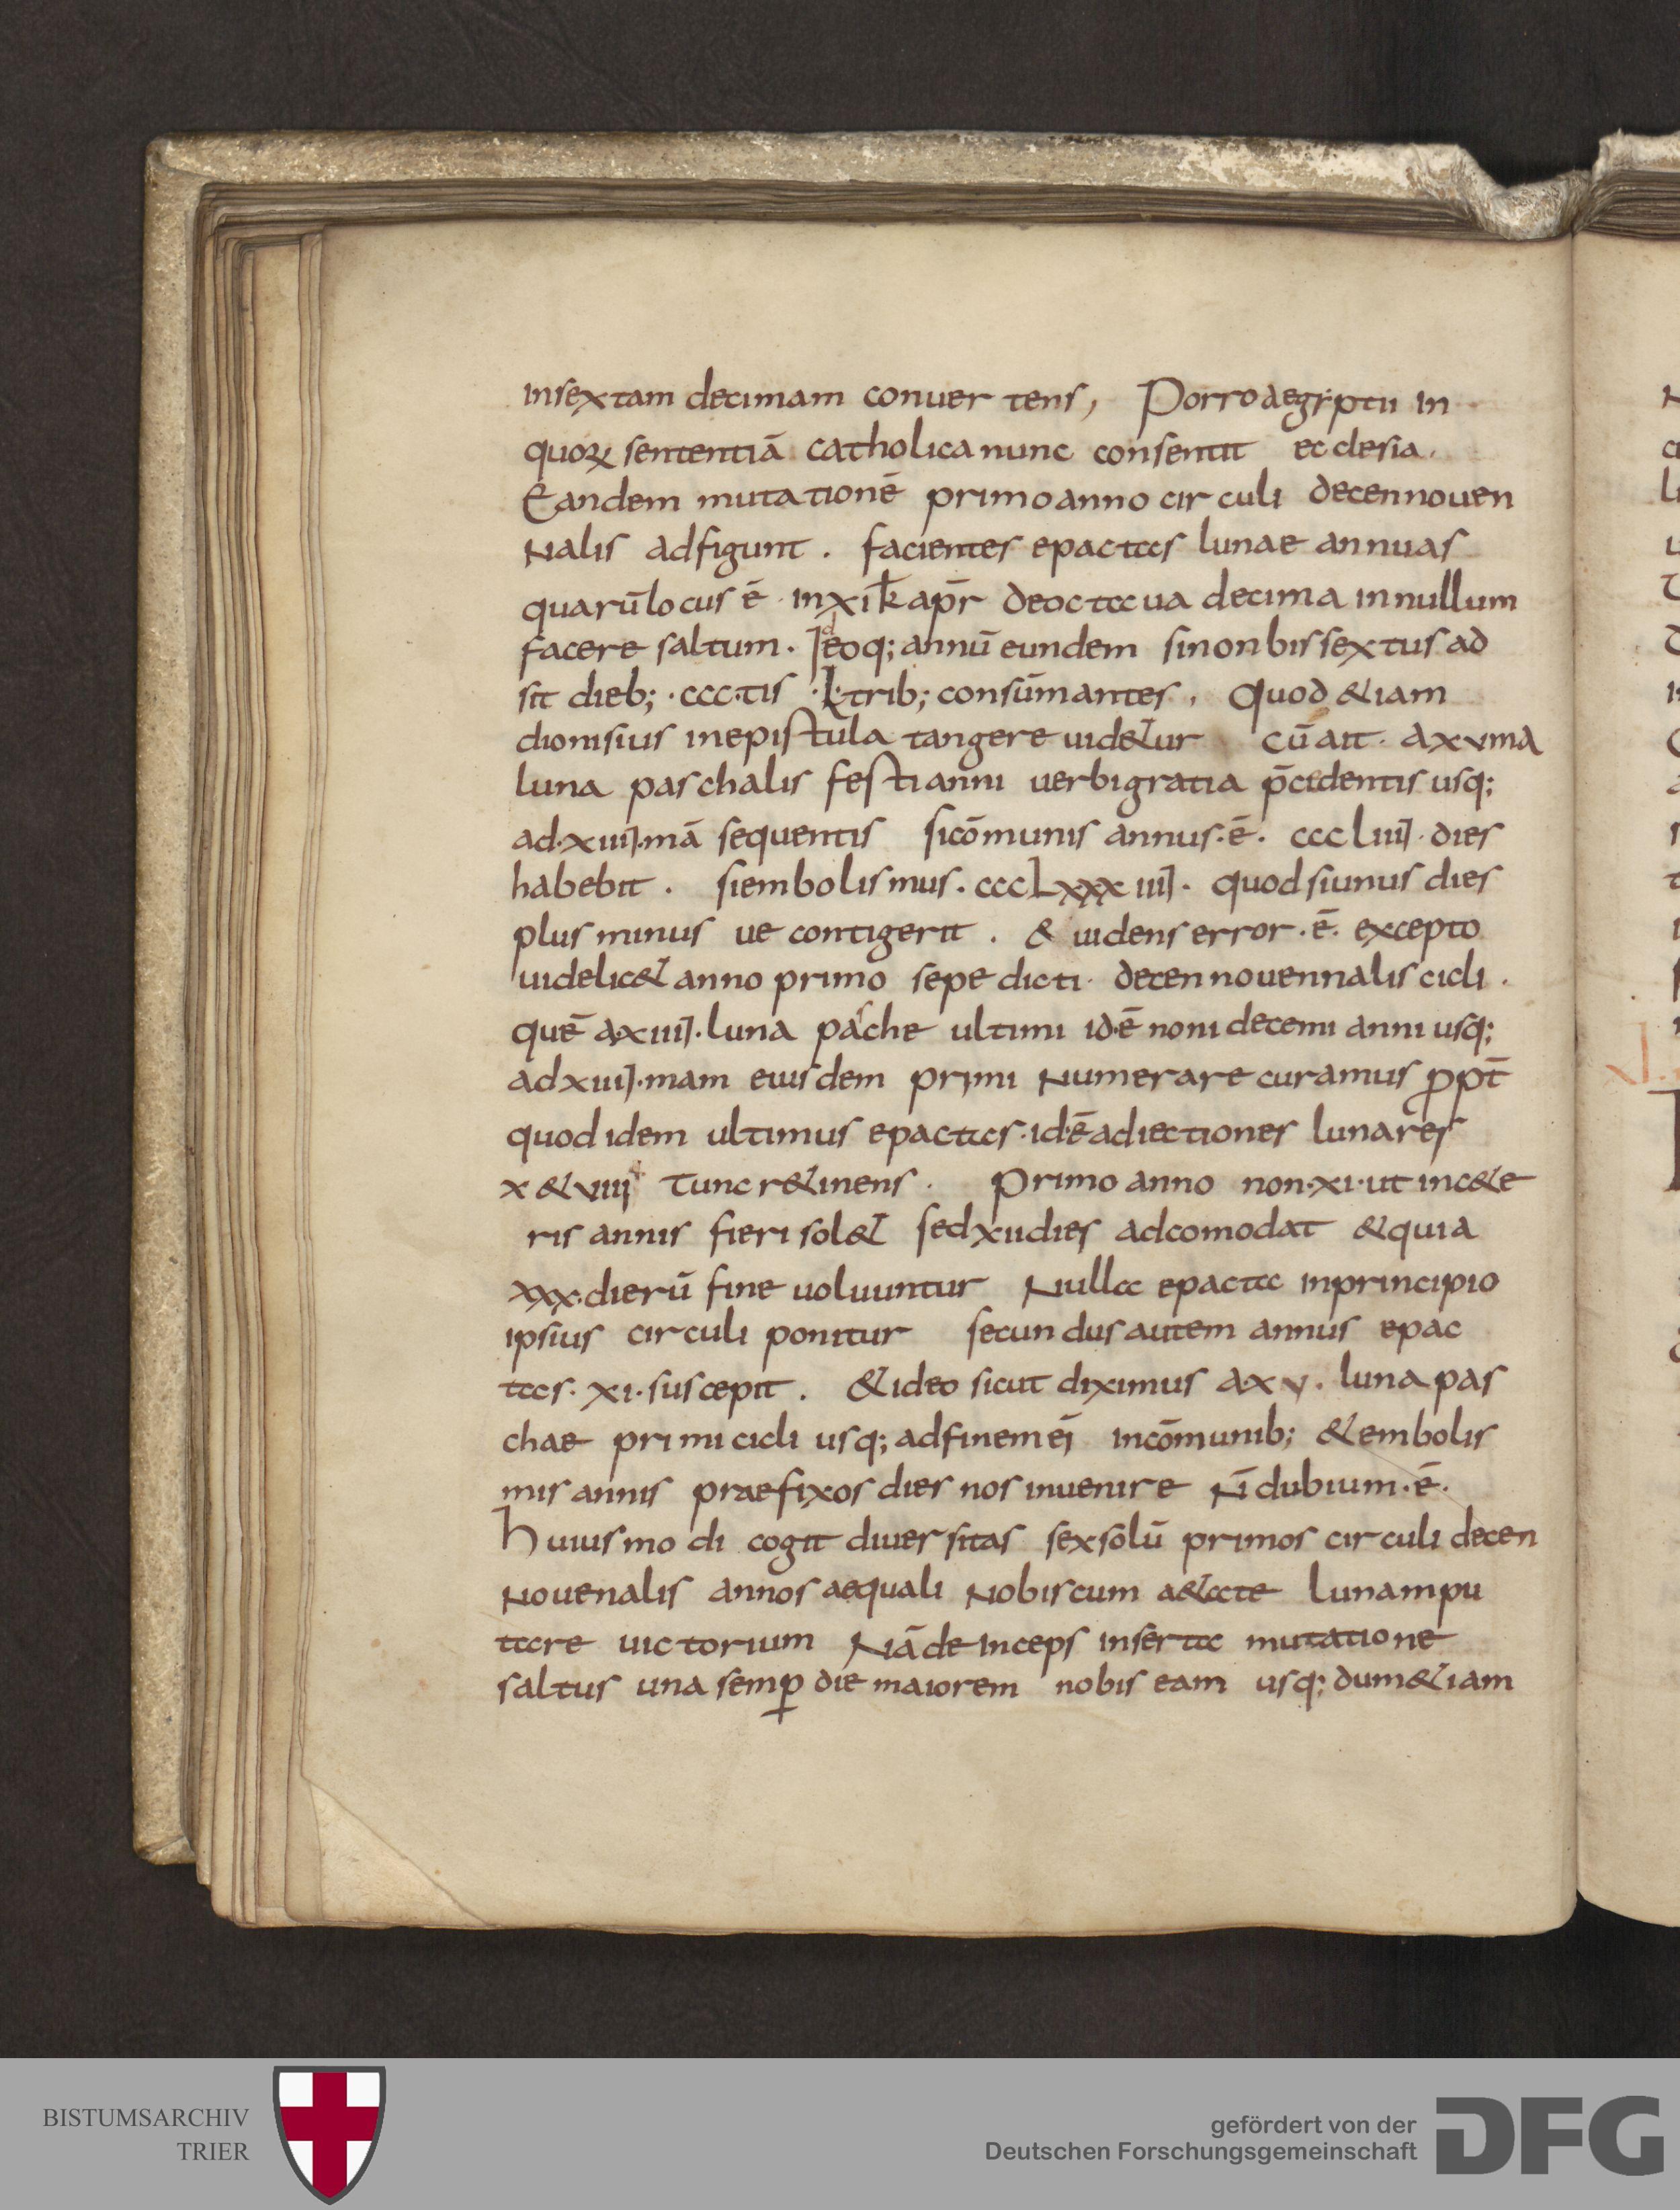 insextam decimam conuer tens, Porro aegẏptii in
quoꝝ sententiā catholica nunc consentit ecclesia.
Eandem mutationē primo anno circuli decennouen
nalis adfigunt. facientes epactas lunae annuas
quarū locus ē. in xi k̄ apr̄ de octaua decima in nullum
facere saltum. Ideoq; annū eundem si non bissextus ad
sit dieb; ·ccc·tis ·l·trib; consūmantes, Quod &iam
dionisius in epistula tangere uid&ur cū ait. a xvma
luna paschalis festi anni uerbi gratia p̄cedentis usq;
ad·xiiii·mā sequentis si cōmunis annus·ē· cccliiii· dies
habebit. si embolismus. ccclxxxiiii. quod si unus dies
plus minus ue contigerit. & uidens error·ē· excepto
uidelic& anno primo sepe dicti· decennouennalis cicli.
quē a·xiiii·luna pasche ultimi id·ē noni decemi anni usq;
ad xiiii·mam eiusdem primi numerare curamus ꝓpt̄
quod idem ultimus epactas·id·ē adiectiones lunares
x & viii tunc r&inens. Primo anno non·xi·ut in c&e
ris annis fieri sol& sed xii dies adcomodat & quia
xxx·dierū fine uoluuntur Nulla epacta in principio
ipsius circuli ponitur secundus autem annus epac
tas·xi·suscepit. & ideo sicut diximus a·xv. luna pas
chae primi cicli usq; ad finem ei in cōmunib; & embolis
mis annis praefixos dies nos inuenire n̄ dubium·ē·
Huiusmodi cogit diuersitas sex solū primos circuli decen
nouenalis annos aequali nobiscum a&ate lunam pu
tare uictorium Nā deinceps inserta mutatione
saltus una semꝑ die maiorem nobis eam usq; dum &iam
BISTUMSARCHIV
TRIER
gefördert von der
Deutschen Forschungsgemeinschaft
DFG